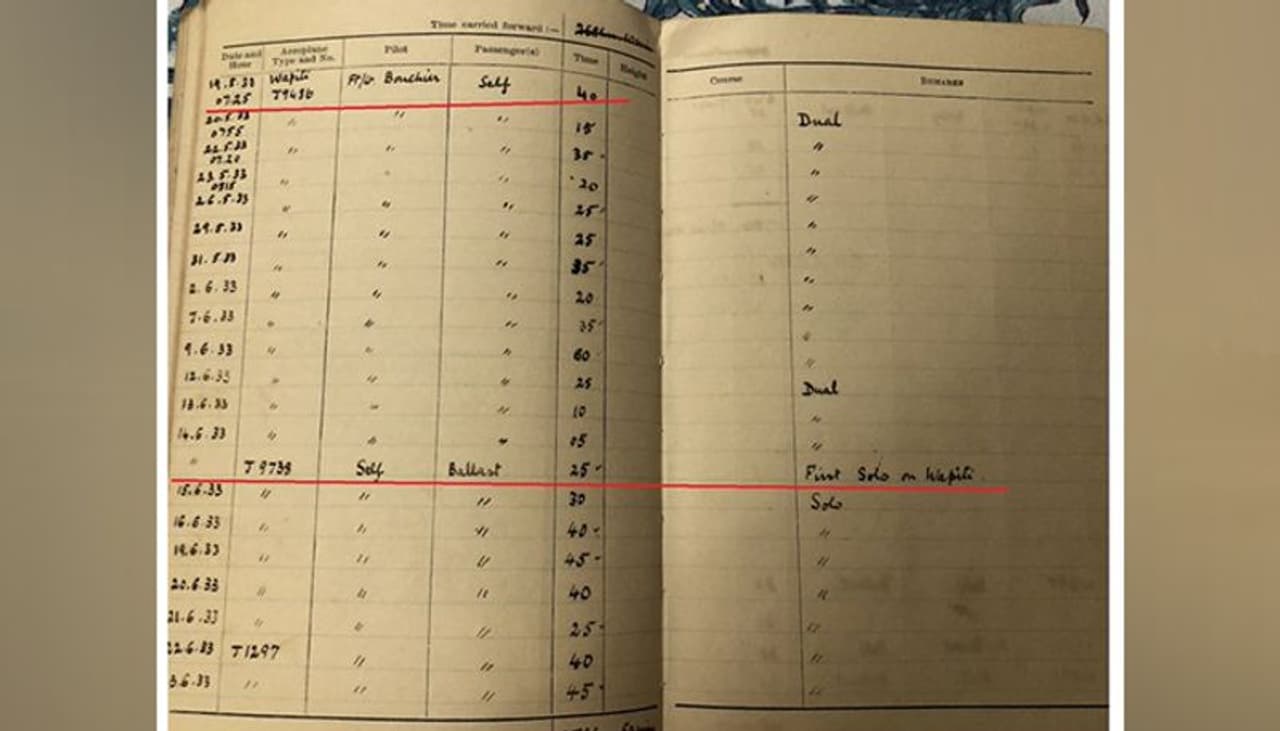 Time carried forward :—
Date and Hour Aeroplane Type and No. Pilot Passenger(s) Time Height Course REMARKS
19.5.33 Wapiti Ft/Lr Bouchier Self 40
0725 T9486
20.5.33 " " " 15 Dual
0755
22.5.33 " " " 35 "
0720
23.5.33 " " " 20 "
0815
26.5.33 " " " 25 "
29.5.33 " " " 25 "
31.5.33 " " " 35 "
2.6.33 " " " 20 "
7.6.33 " " " 35 "
9.6.33 " " " 60 "
12.6.33 " " " 25 Dual
13.6.33 " " " 10 "
14.6.33 " " " 05 "
" T9733 Self Ballast 25 First Solo on Wapiti.
15.6.33 " " " 30 Solo
16.6.33 " " " 40 "
19.6.33 " " " 45 "
20.6.33 " " " 40 "
21.6.33 " " " 25 "
22.6.33 T1297 " " 40 "
3.6.33 " " " 45 "